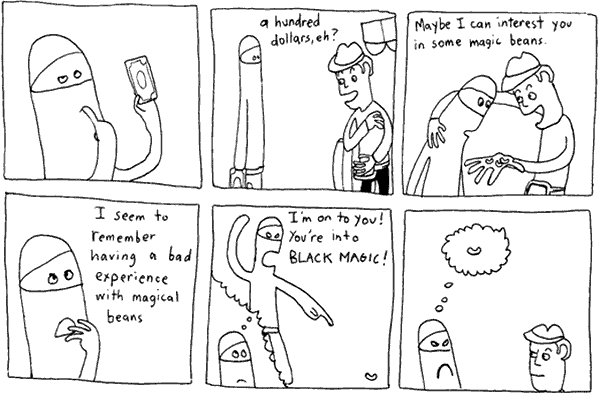 a hundred
dollars, eh?
Maybe I can interest you
in some magic beans.
I seem to
remember
having a bad
experience
with magical
beans
I'm on to you!
You're into
BLACK MAGIC!